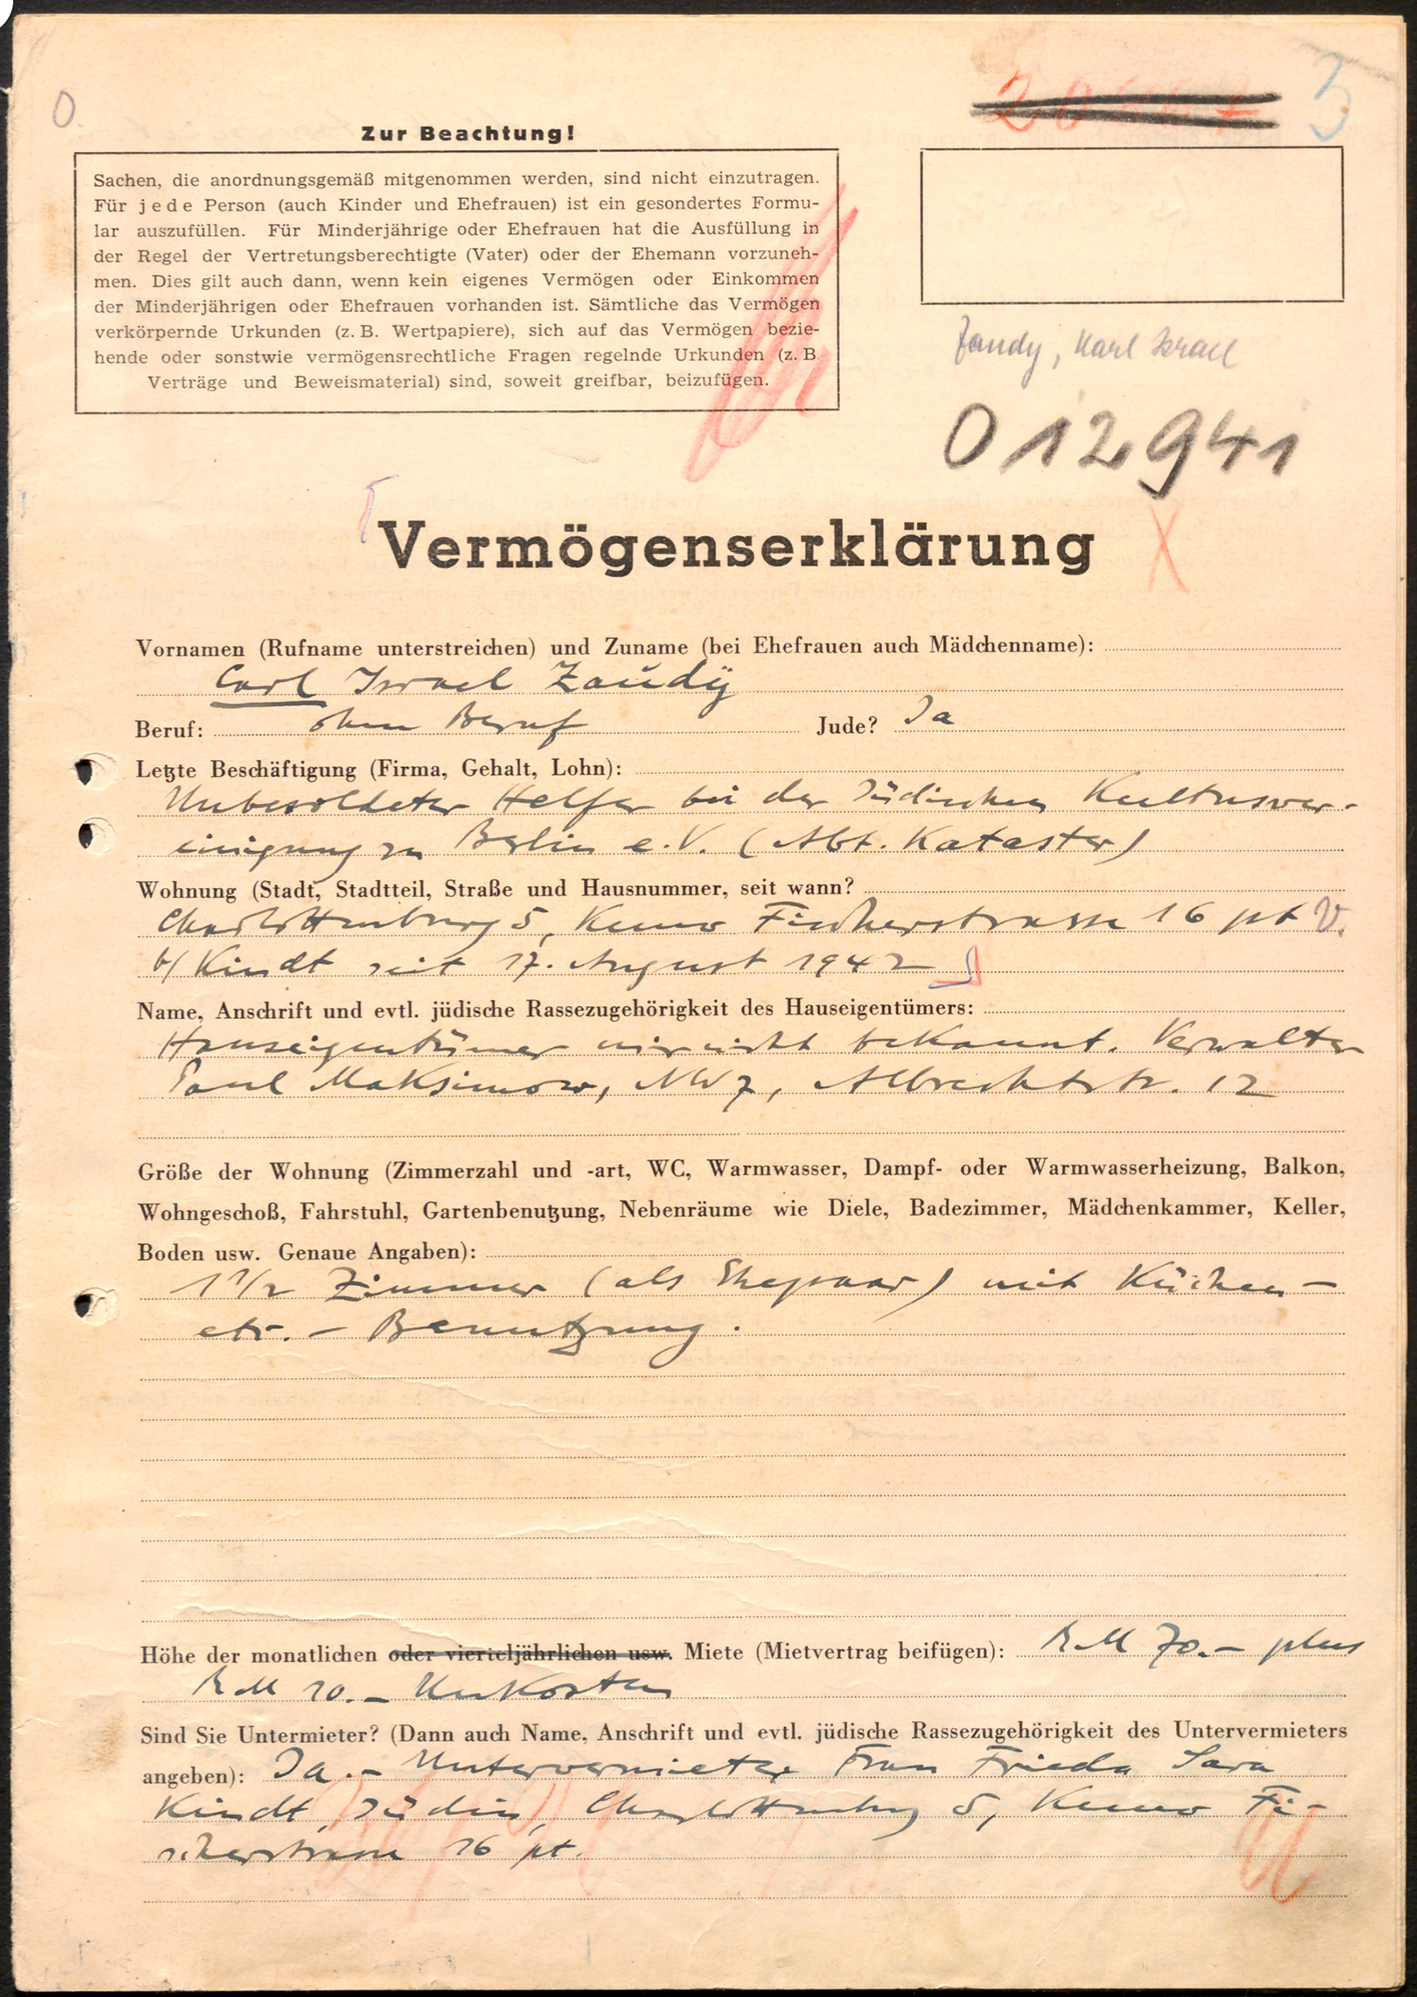 0
3
Zur Beachtung!
Sachen, die anordnungsgemäß mitgenommen werden, sind nicht einzutragen.
Für jede Person (auch Kinder und Ehefrauen) ist ein gesondertes Formu-
lar auszufüllen. Für Minderjährige oder Ehefrauen hat die Ausfüllung in
der Regel der Vertretungsberechtigte (Vater) oder der Ehemann vorzuneh-
men. Dies gilt auch dann, wenn kein eigenes Vermögen oder Einkommen
der Minderjährigen oder Ehefrauen vorhanden ist. Sämtliche das Vermögen
verkörpernde Urkunden (z. B. Wertpapiere), sich auf das Vermögen bezie-
hende oder sonstwie vermögensrechtliche Fragen regelnde Urkunden (z. B
Verträge und Beweismaterial) sind, soweit greifbar, beizufügen.
Zandy, Karl Israel
012941
Vermögenserklärung
Vornamen (Rufname unterstreichen) und Zuname (bei Ehefrauen auch Mädchenname):
Carl Israel Zaudy
Beruf: ohne Beruf Jude? Ja
Letzte Beschäftigung (Firma, Gehalt, Lohn):
Unbesoldeter Helfer bei der Jüdischen Kultusver-
einigung zu Berlin e. V. (Abt. Kataster)
Wohnung (Stadt, Stadtteil, Straße und Hausnummer, seit wann?
Charlottenburg 5, Kuno Fischerstrasse 16 pt V.
b/ Kindt seit 17. August 1942
Name, Anschrift und evtl. jüdische Rassezugehörigkeit des Hauseigentümers:
Hauseigentümer mir nicht bekannt. Verwalter
Paul Maksimow, NW 7, Albrechtstr. 12
Größe der Wohnung (Zimmerzahl und -art, WC, Warmwasser, Dampf- oder Warmwasserheizung, Balkon,
Wohngeschoß, Fahrstuhl, Gartenbenutzung, Nebenräume wie Diele, Badezimmer, Mädchenkammer, Keller,
Boden usw. Genaue Angaben):
1 1/2 Zimmer (als Ehepaar) mit Küchen-
etc. - Benutzung.
Höhe der monatlichen oder vierteljährlichen usw. Miete (Mietvertrag beifügen): RM 70.- plus
RM 10.- Unkosten
Sind Sie Untermieter? (Dann auch Name, Anschrift und evtl. jüdische Rassezugehörigkeit des Untervermieters
angeben): Ja. - Untervermieter Frau Frieda Sara
Kindt, Jüdin, Charlottenburg 5, Kuno Fi-
scherstrasse 16 pt.